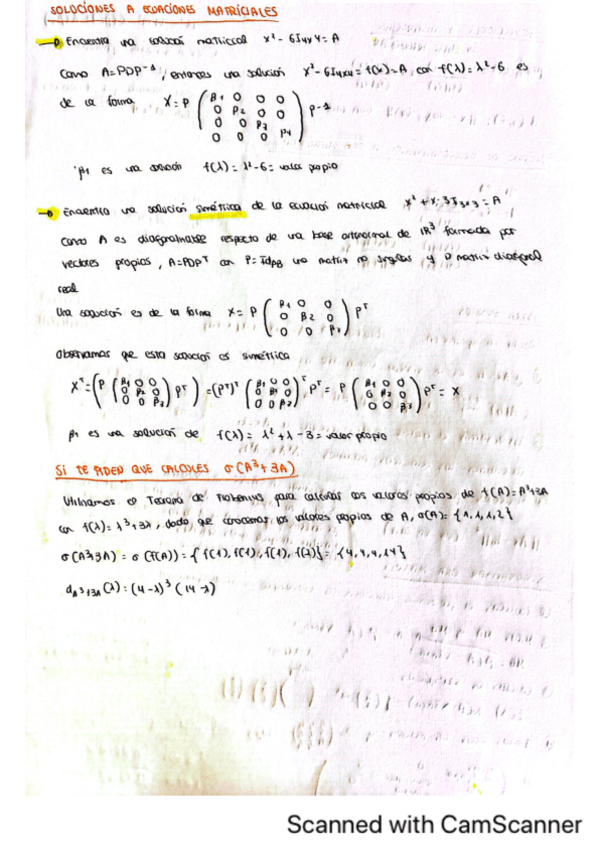 SOLUCIONES A ECUACIONES MATRICIALES
Encuentra una solución matricial X² - 6I₄ₓ₄ = A
Como A=PDP⁻¹, entonces una solución X²-6I₄ₓ₄ = f(X) = A, con f(λ) = λ²-6 es
de la forma X = P ( β₁ 0 0 0
0 β₂ 0 0
0 0 β₃
0 0 0 β₄ ) P⁻¹
β₁ es una solución f(λ) = λ²-6 = valor propio
Encuentra una solución simétrica de la ecuación matricial X² + X - 3I₃ₓ₃ = A
Como A es diagonalizable respecto de una base ortonormal de ℝ³ formada por
vectores propios, A=PDPᵀ con P= una matriz no singular y D matriz diagonal
real
Una solución es de la forma X = P ( β₁ 0 0
0 β₂ 0
0 0 β₃ ) Pᵀ
Observamos que esta solución es simétrica
Xᵀ = (P ( β₁ 0 0
0 β₂ 0
0 0 β₃ ) Pᵀ) = (Pᵀ)ᵀ ( β₁ 0 0
0 β₂ 0
0 0 β₃ )ᵀ Pᵀ = P ( β₁ 0 0
0 β₂ 0
0 0 β₃ ) Pᵀ = X
β₁ es una solución de f(λ) = λ² + λ - 3 = valor propio
SI TE PIDEN QUE CALCULES σ(A³ + 3A)
Utilizamos el Teorema de Frobenius para calcular los valores propios de f(A) = A³+3A
con f(λ) = λ³+3λ, dado que conocemos los valores propios de A, σ(A) = {1,1,1,2}
σ(A³+3A) = σ(f(A)) = {f(1), f(1), f(1), f(2)} = {4,4,4,14}
d_A³+3A (λ) = (4-λ)³ (14-λ)
Scanned with CamScanner